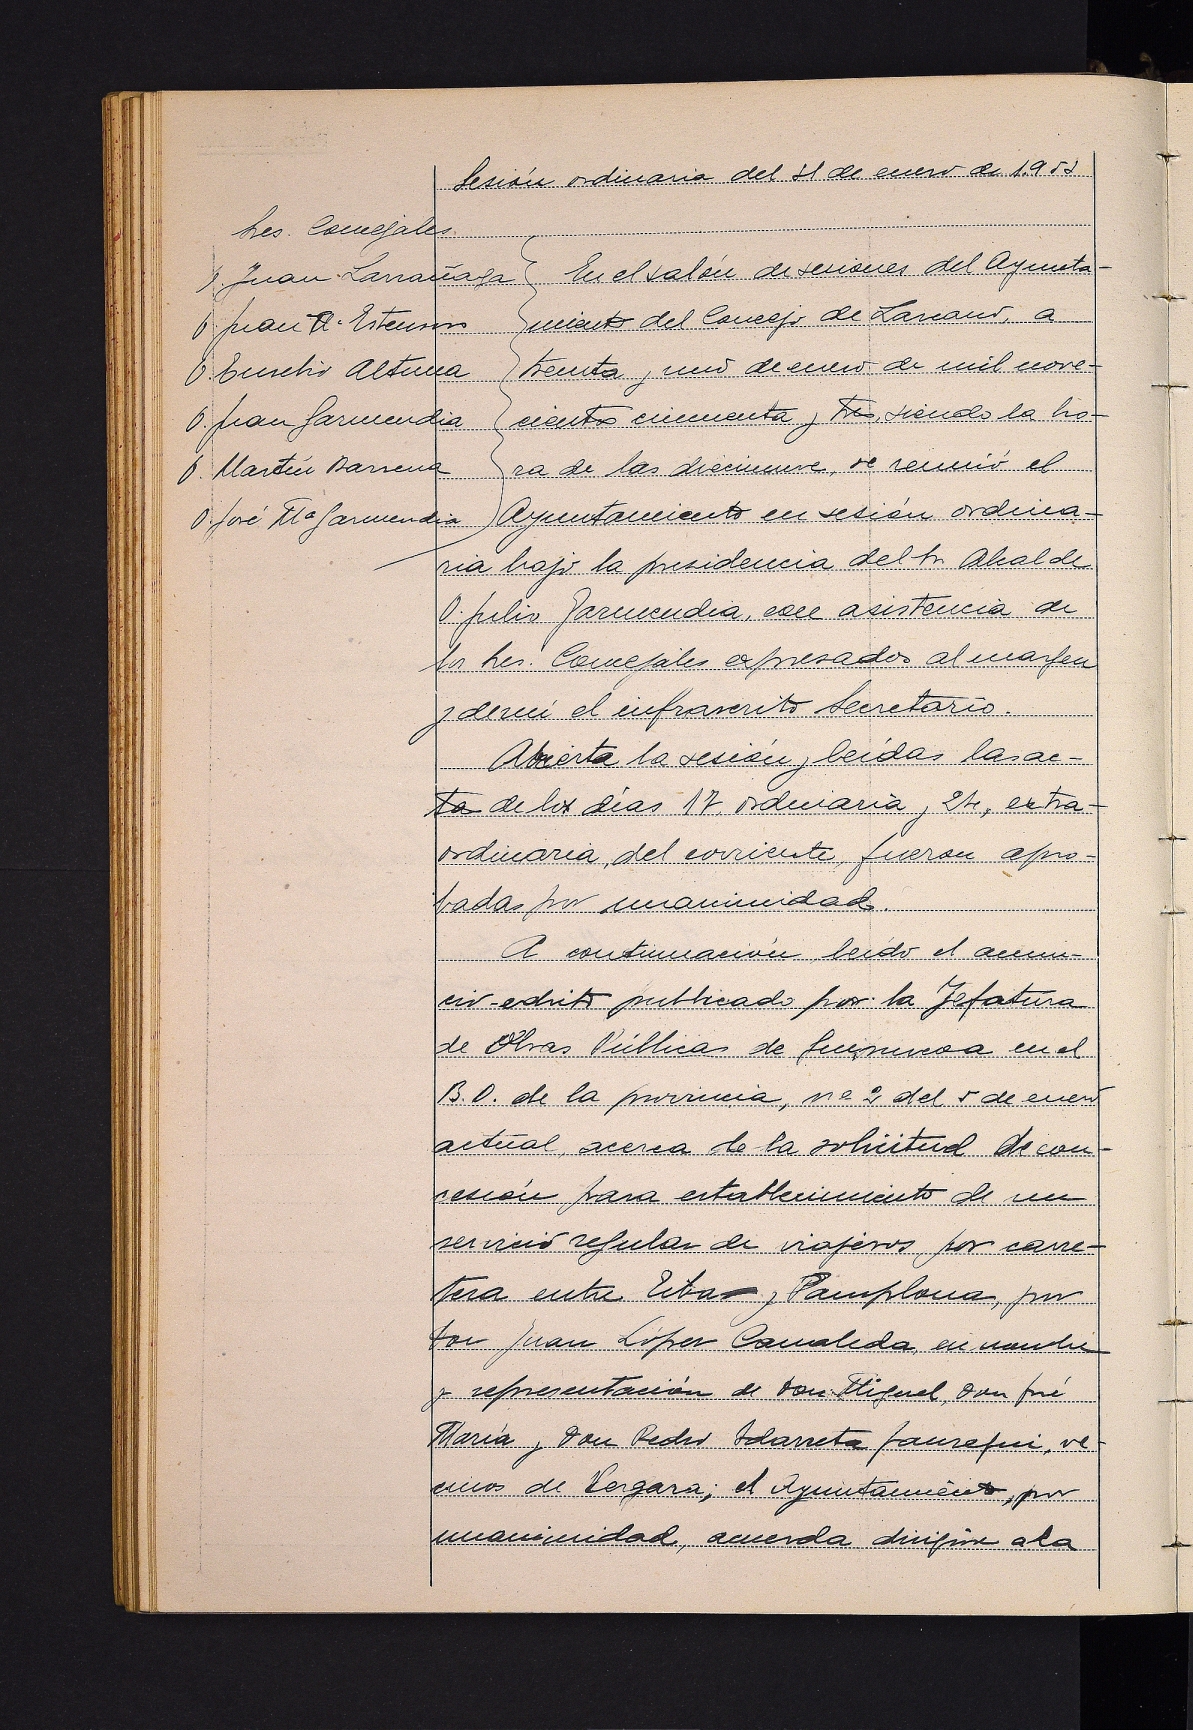 Sesión ordinaria del 31 de enero de 1.953
Sres. Concejales.
D. Juan Larrañaga
D. Juan A. Estensoro
D. Eusebio Altuna
D. Juan Garmendia
D. Martín Barrena
D. José Mª Garmendia
En el salón de sesiones del Ayunta-
miento del Concejo de Lazcano, a
treinta y uno de enero de mil nove-
cientos cincuenta y tres, siendo la ho-
ra de las diecinueve, se reunió el
Ayuntamiento en sesión ordina-
ria bajo la presidencia del Sr. Alcalde
D. Julio Garmendia, con asistencia de
los Sres. Concejales expresados al margen
y de mi el infrascrito Secretario.
Abierta la sesión y leídas las ac-
ta de los días 17, ordinaria y 24, extra-
ordinaria, del corriente, fueron apro-
badas por unanimidad.
A continuación, leído el anun-
cio-edicto publicado por la Jefatura
de Obras Públicas de Guipuzcoa en el
B.O. de la provincia, nº 2 del 5 de enero
actual, acerca de la solicitud de con-
cesión para establecimiento de un
servicio regular de viajeros por carre-
tera entre Eibar y Pamplona, por
Don Juan López, en nombre
y representación de Don Miguel, Don José
María y Don Pedro Idarreta Jauregui, ve-
cinos de Vergara; el Ayuntamiento, por
unanimidad, acuerda dirigirse a la